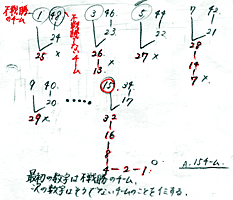 不戦勝のチーム
不戦勝でないチーム
1 48 3 46 5 44 7 42
24 23 22 21
25 × 26 × 27 × 28
13 14
7 ×
9 40 15 34
20 17
29 × ...... 32
16
8
4-2-1
A. 15チーム
最初の数字は不戦勝のチーム、
次の数字はそうでないチームのことを仁する。